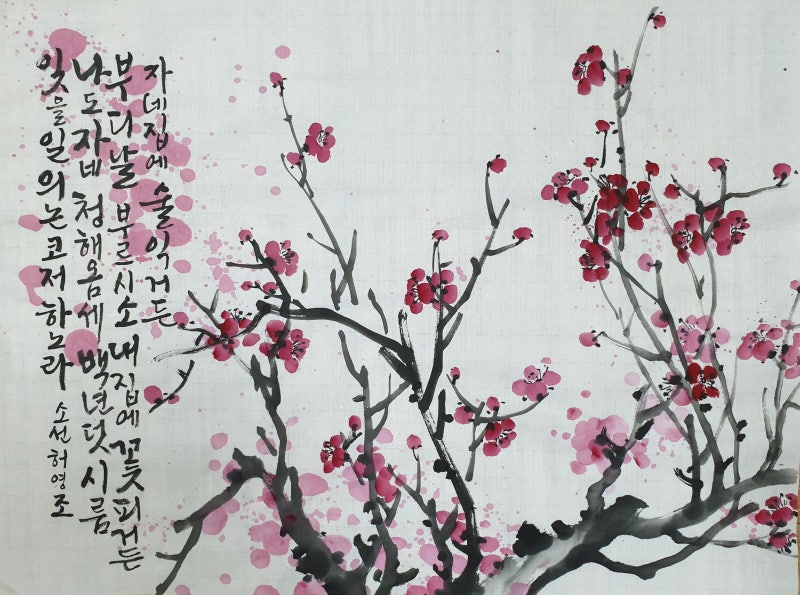 자네집에 술익거든
부디날 부르시소 내집에 꽃피거든
나도자네 청해옴세 백년덧시름
잊을일의논코저하노라 소선허영조